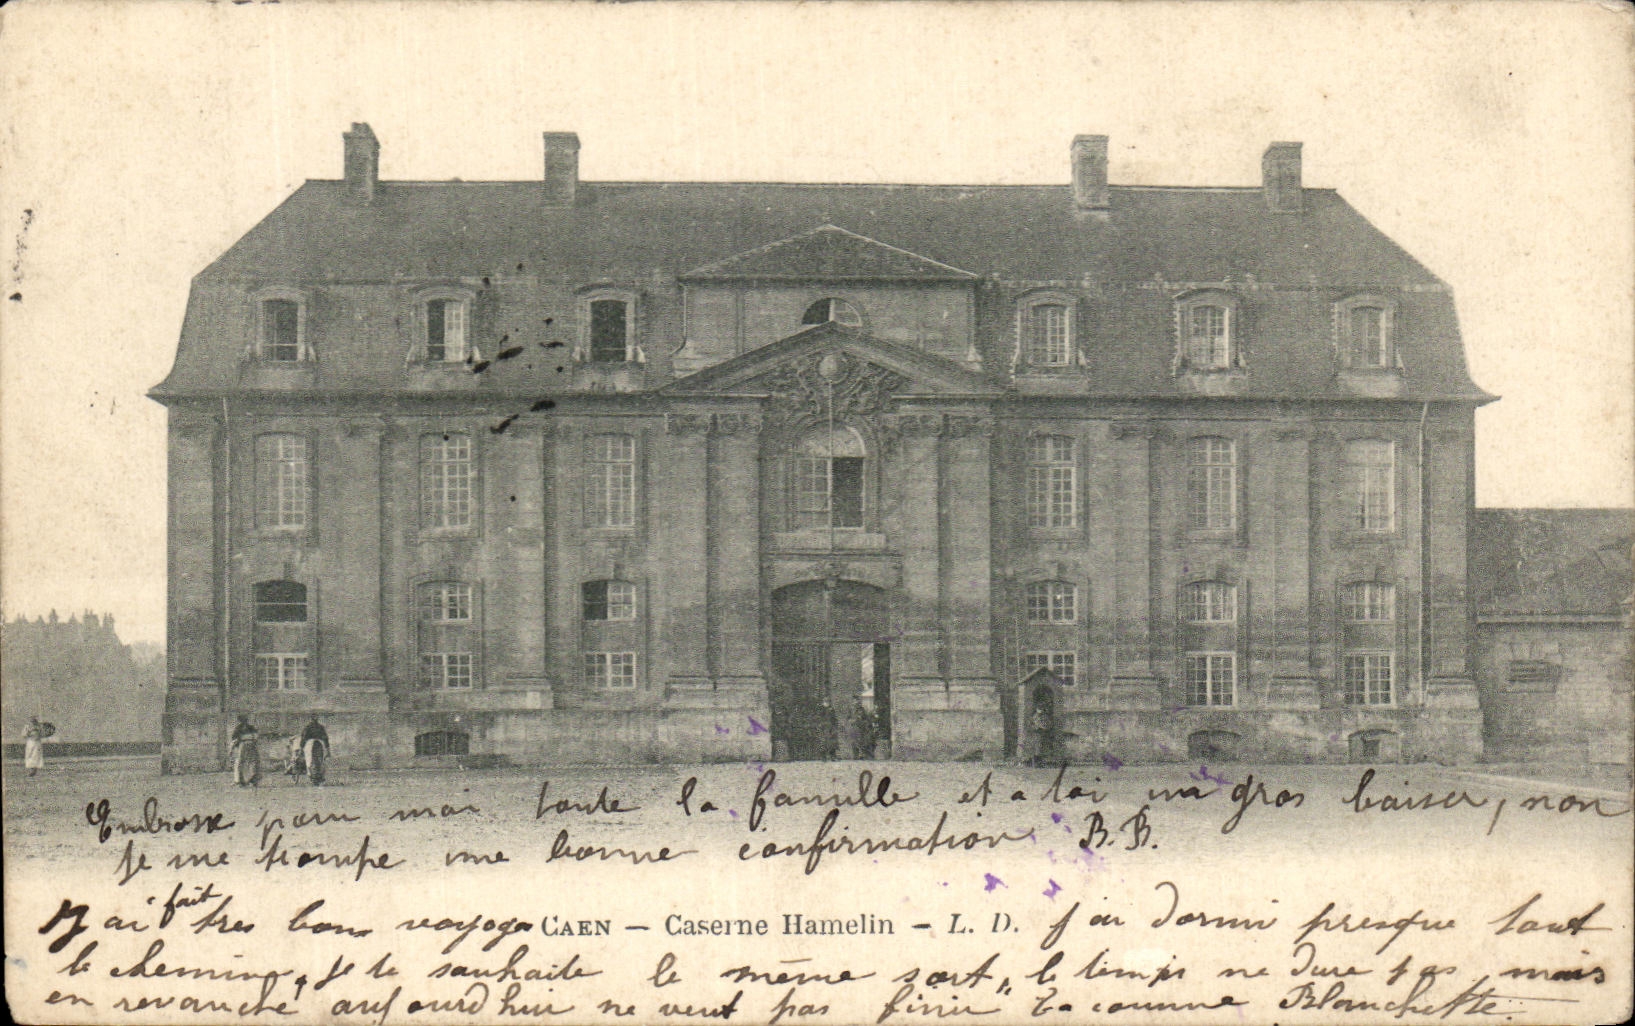 Embrasse pour moi toute la famille et a toi un gros baiser, non
je me trompe une bonne confirmation B. B.
J'ai fait tres bon voyage CAEN — Caserne Hamelin — L. D. j'ai dormi presque tout
le chemin, je te souhaite le même sort, le temps ne dure pas mais
en revanche aujourd'hui ne veut pas finir" Ta Blanchette.